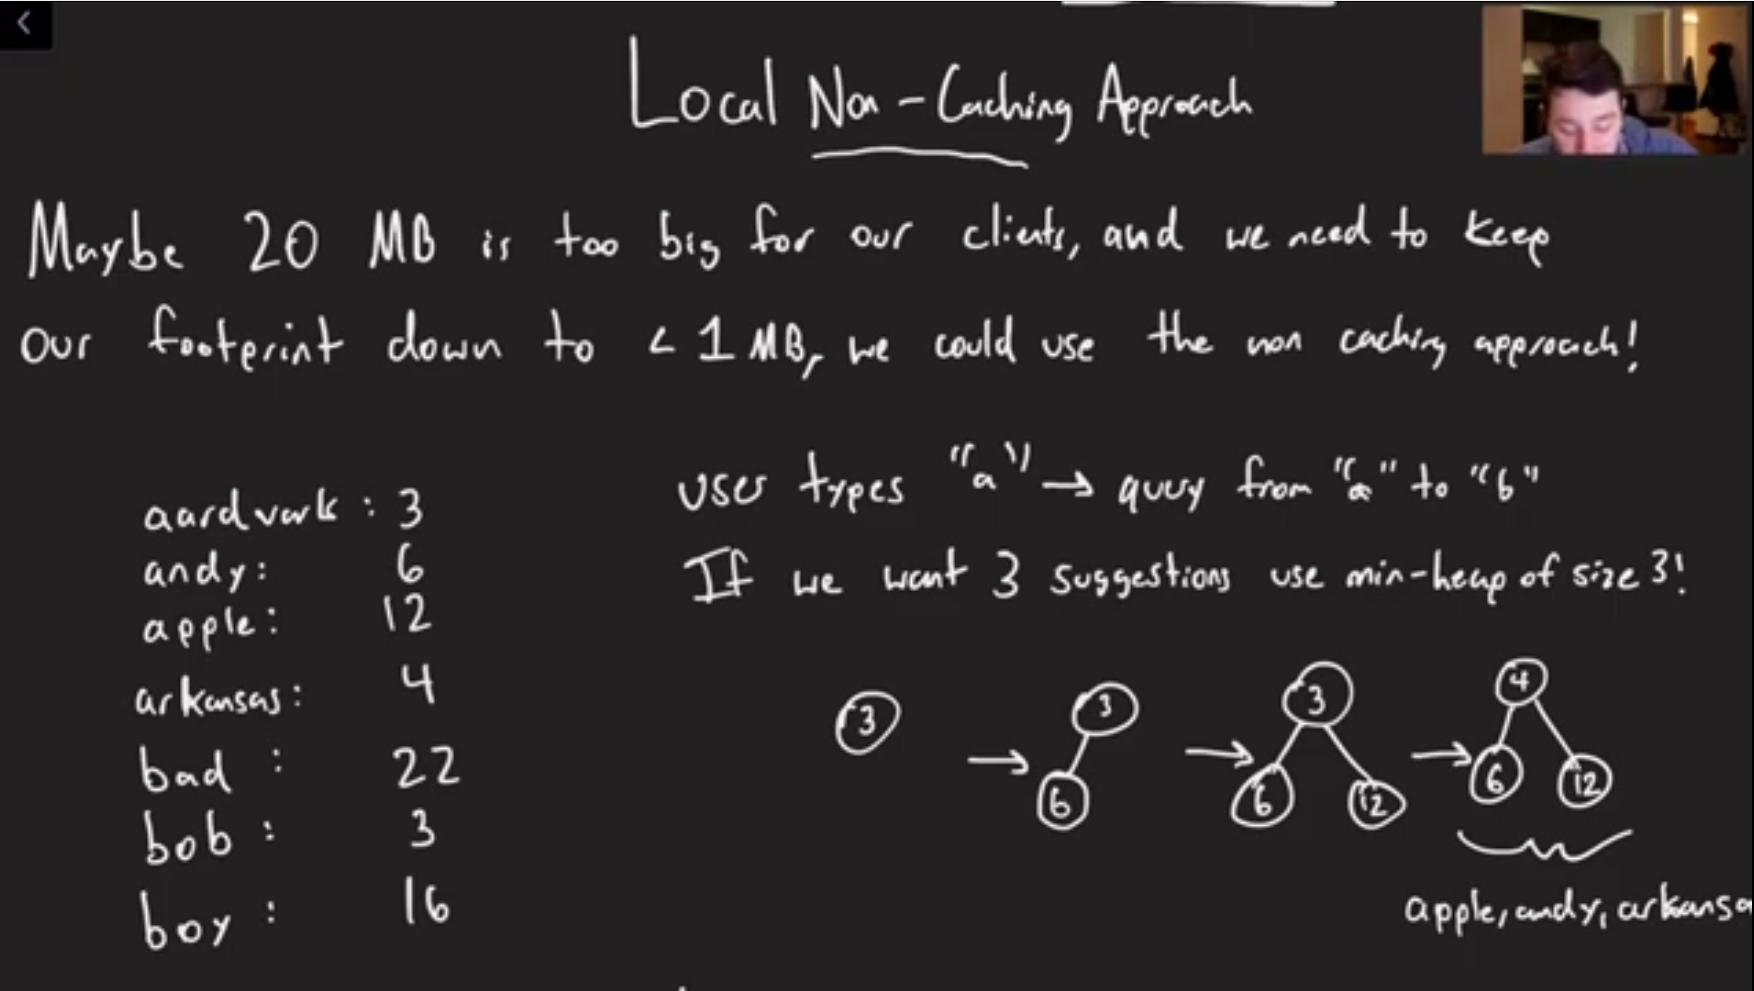 Local Non-Caching Approach
Maybe 20 MB is too big for our clients, and we need to keep
our footprint down to < 1 MB, we could use the non caching approach!
aardvark : 3
andy: 6
apple: 12
arkansas: 4
bad : 22
bob : 3
boy : 16
user types "a" → query from "a" to "b"
If we want 3 suggestions use min-heap of size 3!
3 → 3 → 3 → 4
6 6 12 6 12
apple, andy, arkansa